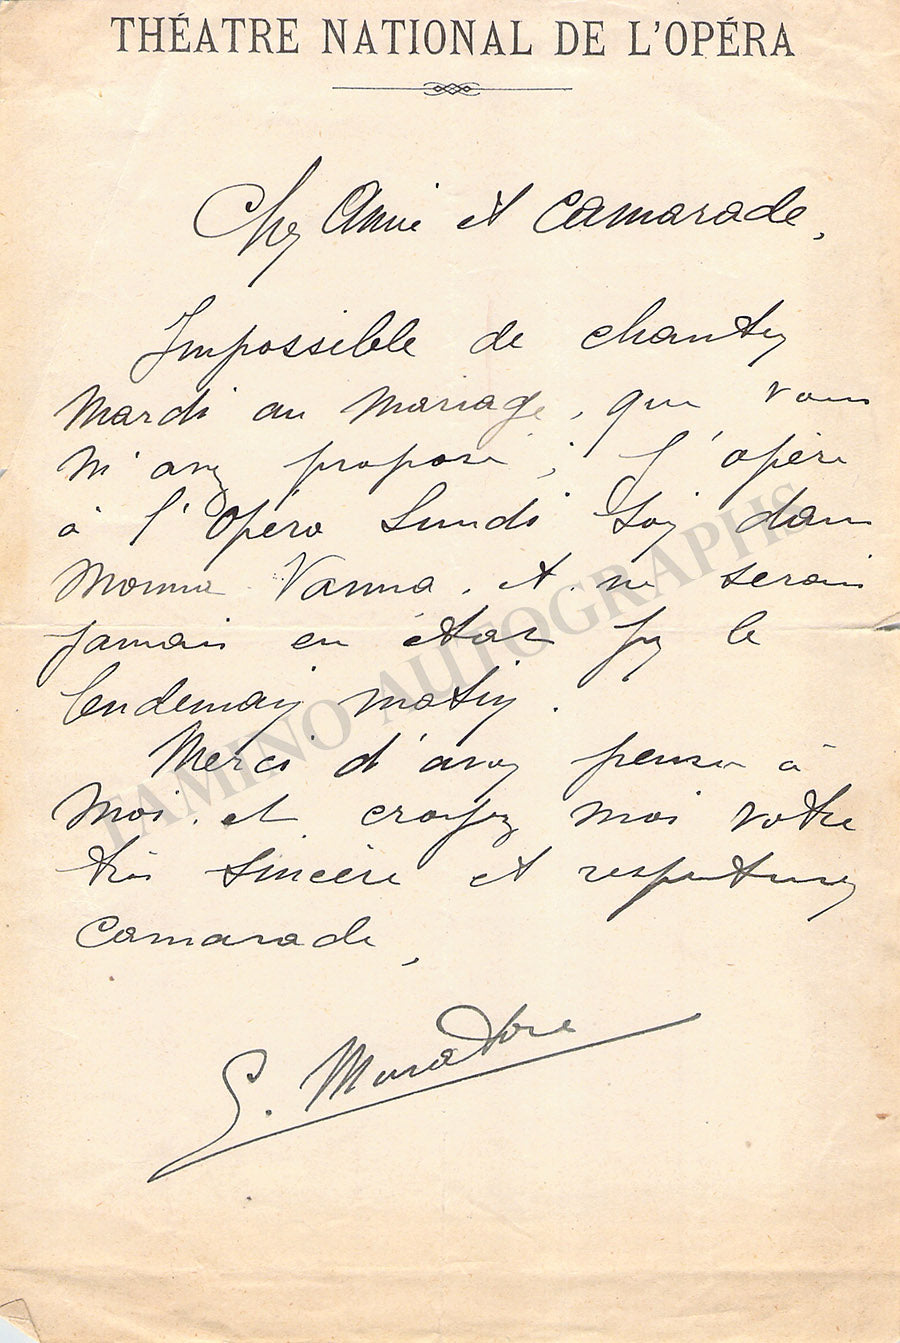 THÉATRE NATIONAL DE L'OPÉRA
Cher Ami et Camarade,
Impossible de chanter
Mardi au Mariage, que vous
m'avez proposé ; J'opère
à l'Opéra Lundi Soir dans
Monna Vanna, et ne serais
jamais en état pour le
lendemain matin.
Merci d'avoir pensé à
moi, et croyez moi votre
très sincère et respectueux
Camarade,
L. Muratore
TAMINO AUTOGRAPHS